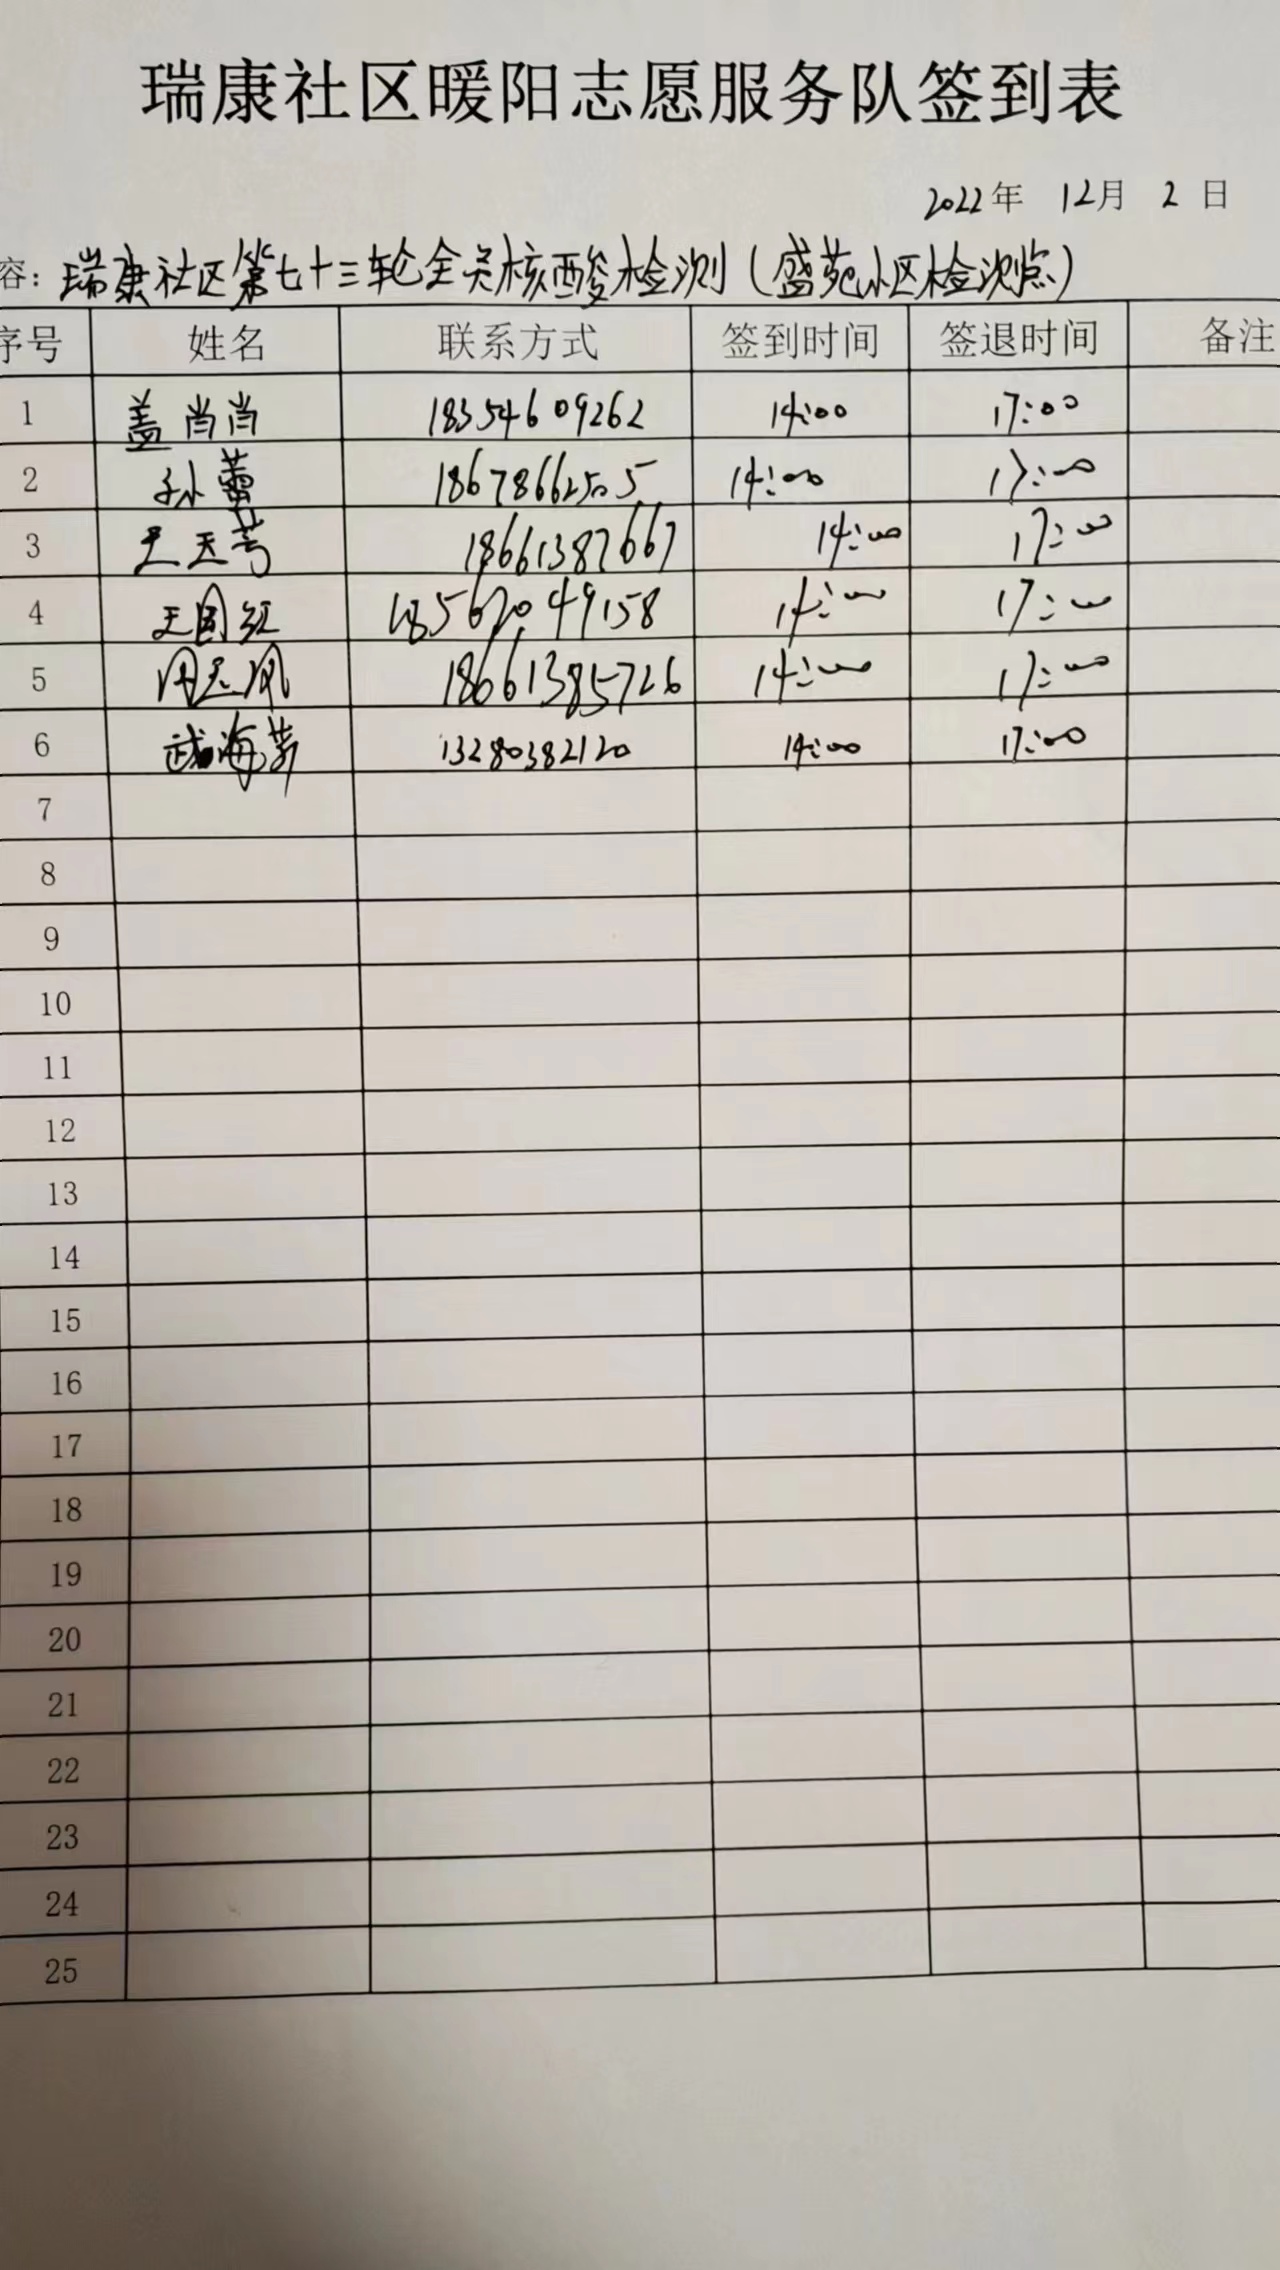 瑞康社区暖阳志愿服务队签到表
2022年 12月 2 日
容：瑞康社区第七十三轮全员核酸检测（盛苑小区检测点）
序号 姓名 联系方式 签到时间 签退时间 备注
1 盖肖肖 18354609262 14:00 17:00
2 孙蕾 18678662505 14:00 17:00
3 18661387667 14:00 17:00
4 王国红 18562049158 14:00 17:00
5 18661385726 14:00 17:00
6 武海 13280382120 14:00 17:00
7
8
9
10
11
12
13
14
15
16
17
18
19
20
21
22
23
24
25